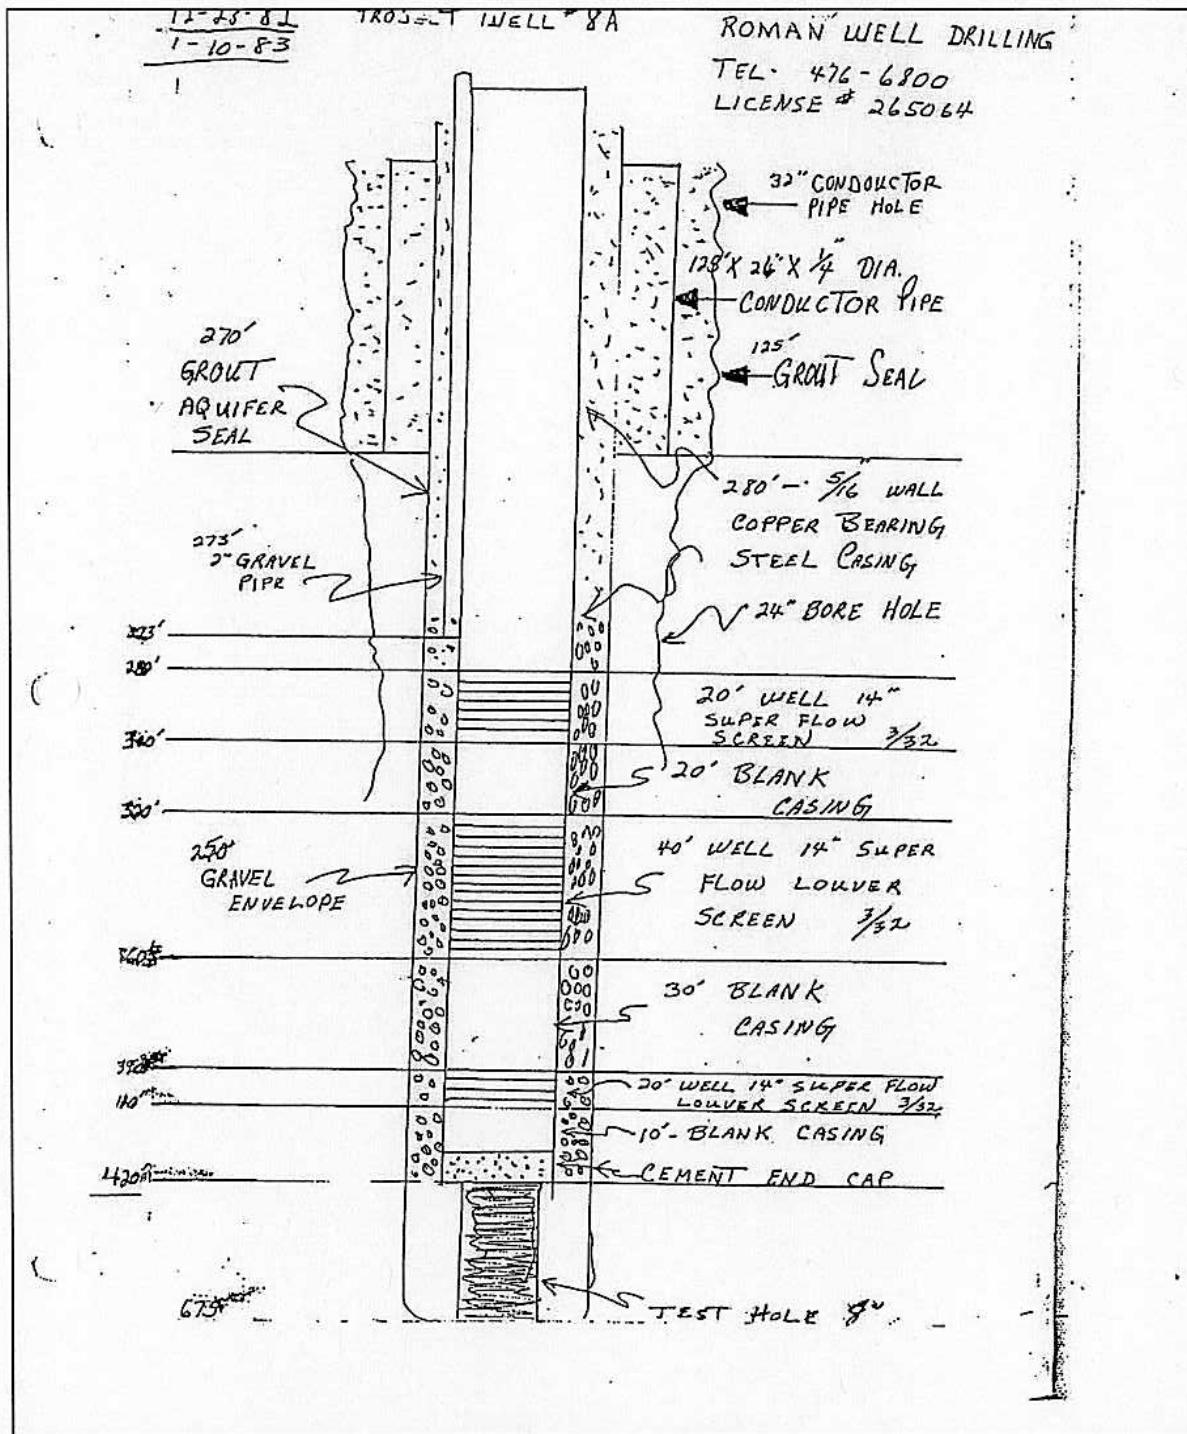 12-28-82
1-10-83
WELL # 8A
ROMAN WELL DRILLING
TEL. 476-6800
LICENSE # 265064
32" CONDUCTOR
PIPE HOLE
128' X 26" X 1/4" DIA.
CONDUCTOR PIPE
125'
GROUT SEAL
270'
GROUT
AQUIFER
SEAL
280' - 5/16" WALL
COPPER BEARING
STEEL CASING
273'
2" GRAVEL
PIPE
24" BORE HOLE
273'
280'
20' WELL 14"
SUPER FLOW
SCREEN 3/32
300'
20' BLANK
CASING
320'
250'
GRAVEL
ENVELOPE
40' WELL 14" SUPER
FLOW LOUVER
SCREEN 3/32
360'
30' BLANK
CASING
390'
20' WELL 14" SUPER FLOW
LOUVER SCREEN 3/32
10'- BLANK CASING
CEMENT END CAP
420'
675'
TEST HOLE 8"